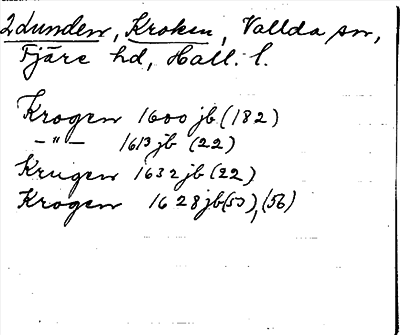 2 Lunden, Kroken, Vallda sn,
Fjäre hd, Hall. l.
Krogen 1600 jb (182)
— " — 1613 jb (22)
Krugen 1632 jb (22)
Krogen 1628 jb (53), (56)